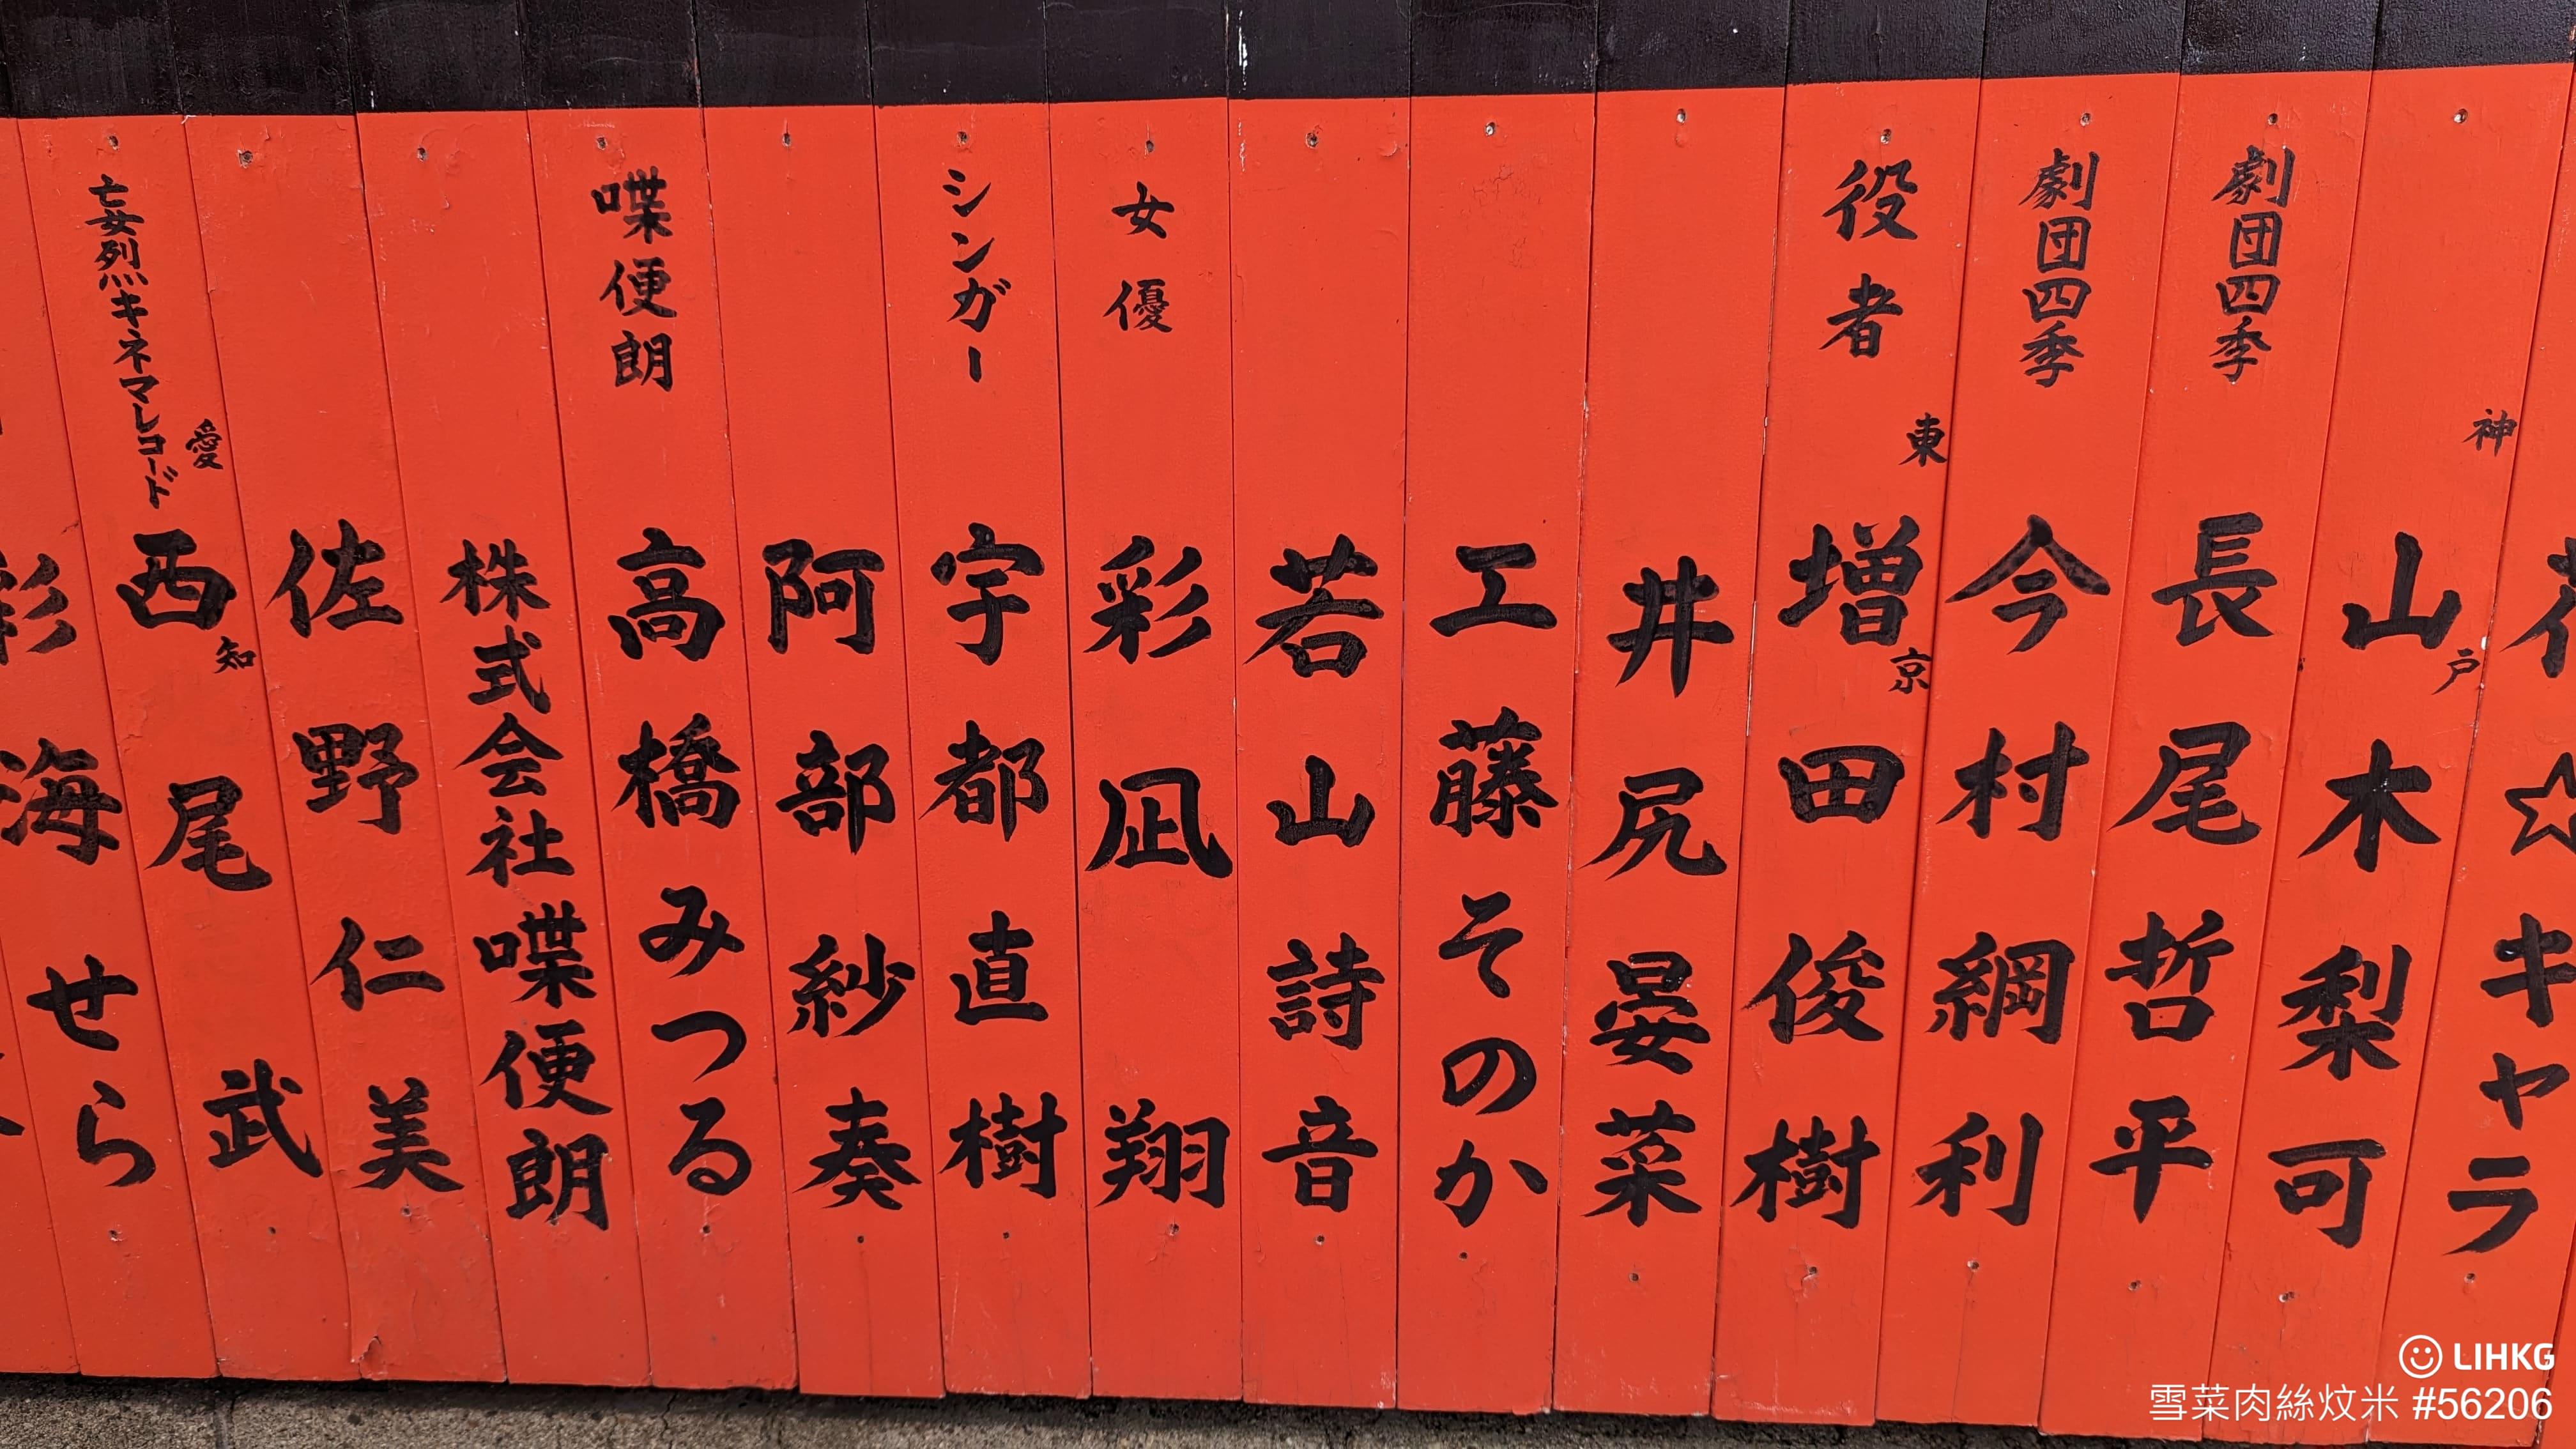 ☆キャラ
神戸
山木梨可
劇団四季
長尾哲平
劇団四季
今村綱利
役者
東京
増田俊樹
井尻晏菜
工藤そのか
若山詩音
女優
彩凪翔
シンガー
宇都直樹
阿部紗奏
喋便朗
高橋みつる
株式会社喋便朗
佐野仁美
妄烈キネマレコード
愛知
西尾武
彩海せら
LIHKG
雪菜肉絲炆米 #56206